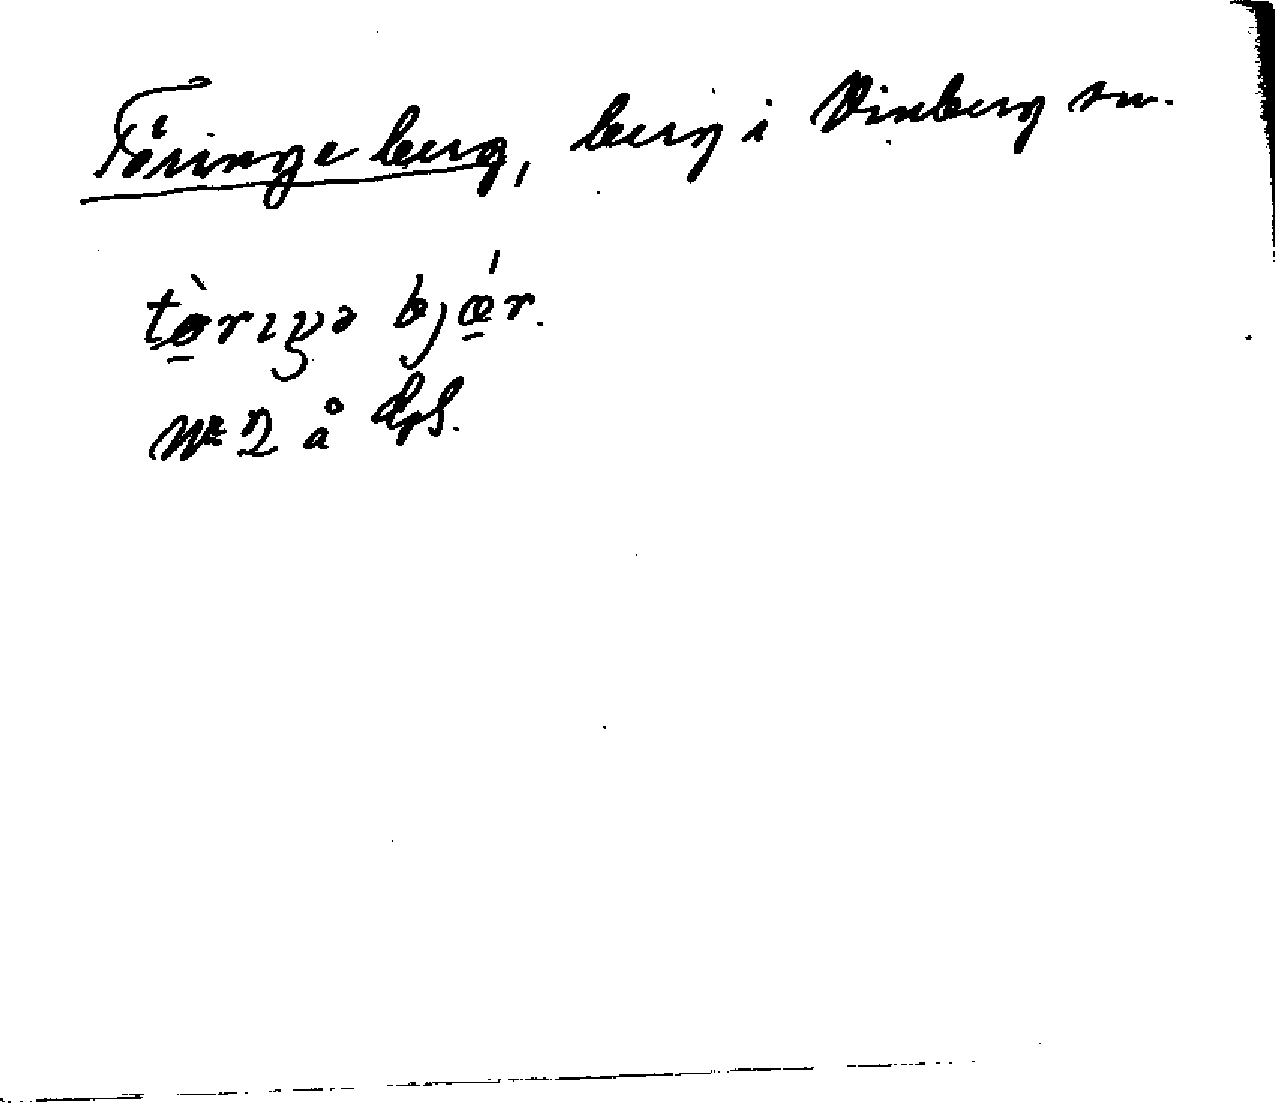 Töringeberg, berg i Vinberg sn.
tö̀riŋə bjǽr.
Nr 2 å kps.